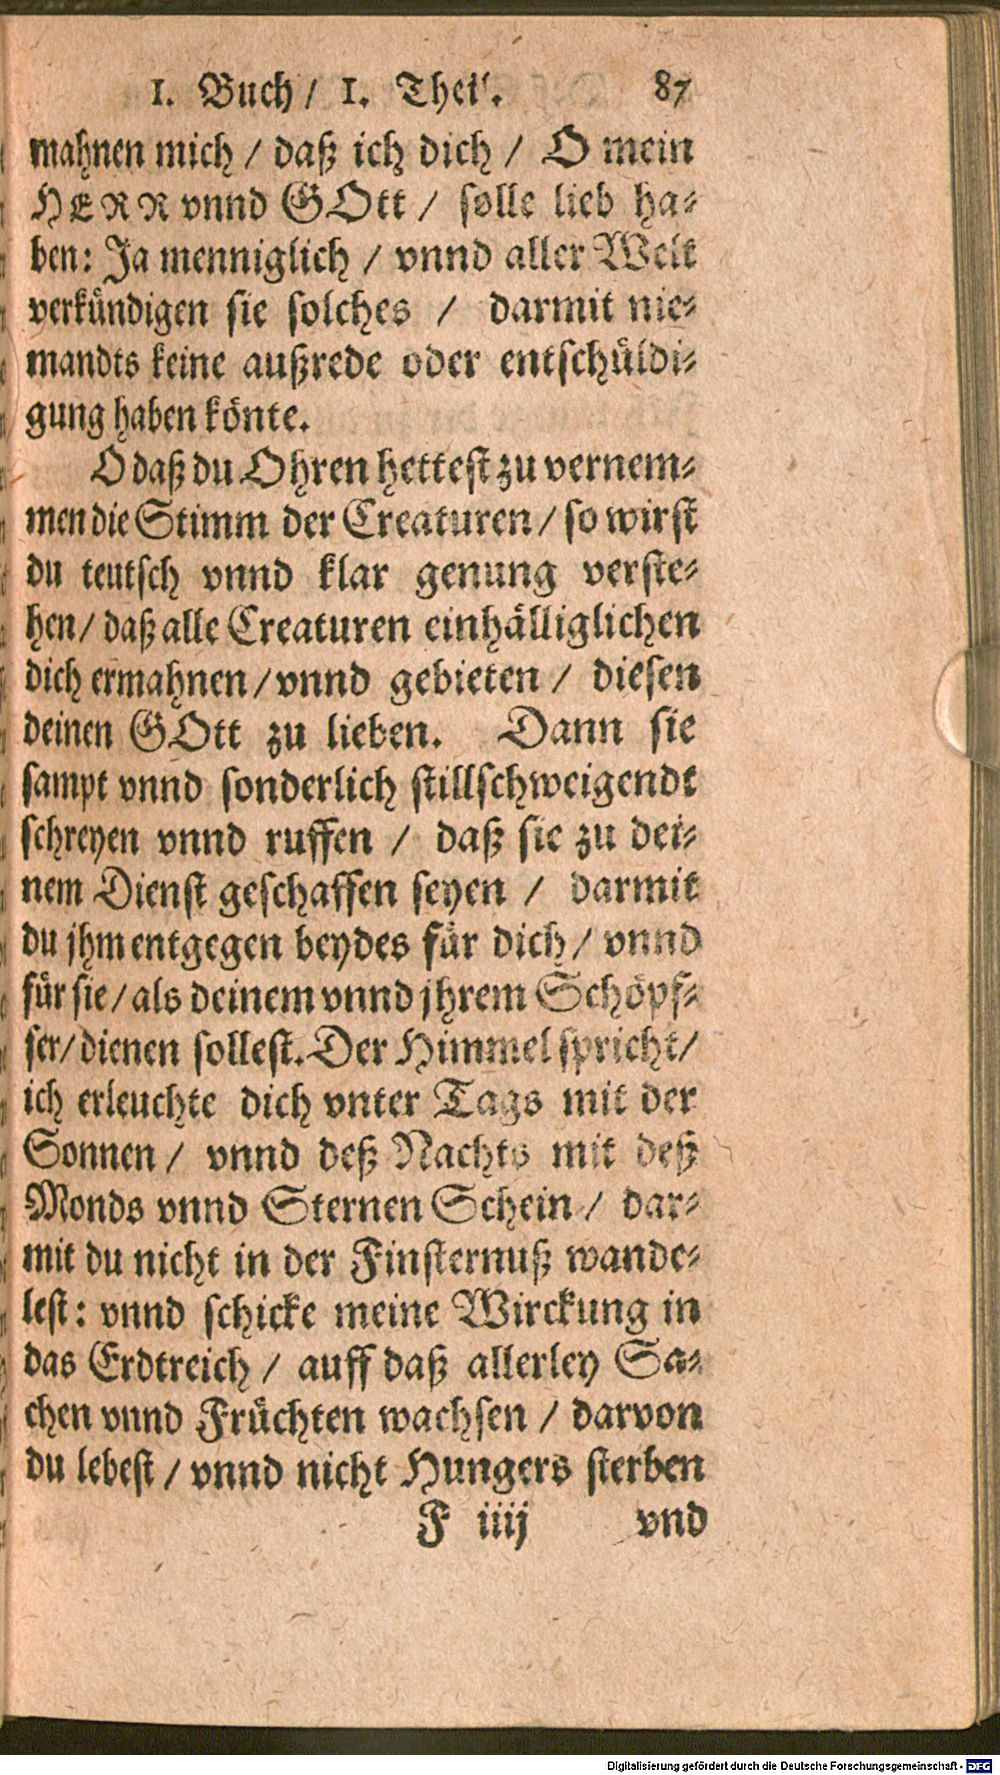 1. Buch / 1. Theil. 87
mahnen mich / daß ich dich / O mein
HERR vnnd GOtt / solle lieb ha-
ben: Ja menniglich / vnnd aller Welt
verkündigen sie solches / darmit nie-
mandts keine außrede oder entschüldi-
gung haben könte.
O daß du Ohren hettest zu vernem-
men die Stimm der Creaturen / so wirst
du teutsch vnnd klar genung verste-
hen / daß alle Creaturen einhälliglichen
dich ermahnen / vnnd gebieten / diesen
deinen GOtt zu lieben. Dann sie
sampt vnnd sonderlich stillschweigendt
schreyen vnnd ruffen / daß sie zu dei-
nem Dienst geschaffen seyen / darmit
du jhm entgegen beydes für dich / vnnd
für sie / als deinem vnnd jhrem Schöpf-
fer / dienen sollest. Der Himmel spricht /
ich erleuchte dich vnter Tags mit der
Sonnen / vnnd deß Nachts mit deß
Monds vnnd Sternen Schein / dar-
mit du nicht in der Finsternuß wande-
lest: vnnd schicke meine Wirckung in
das Erdtreich / auff daß allerley Sa-
chen vnnd Früchten wachsen / darvon
du lebest / vnnd nicht Hungers sterben
F iiij vnd
Digitalisierung gefördert durch die Deutsche Forschungsgemeinschaft - DFG